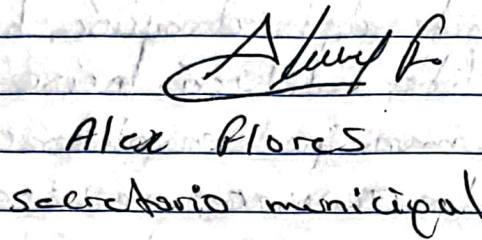 Alex Flores
secretario municipal